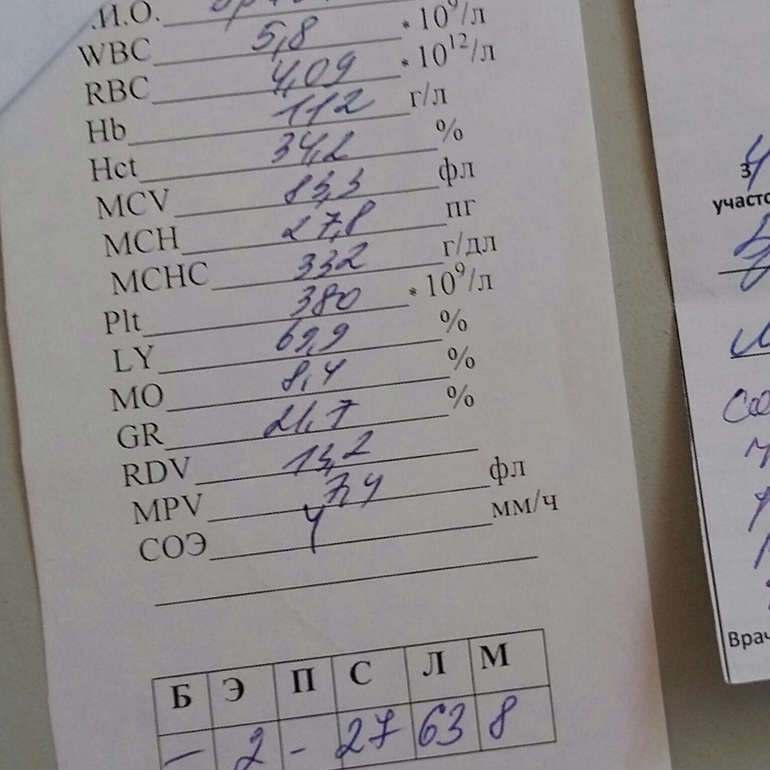 .И.О.
WBC 5,8 * 10⁹/л
RBC 4,09 * 10¹²/л
Hb 112 г/л
Hct 34,2 %
MCV 83,3 фл
MCH 27,8 пг
MCHC 332 г/дл
Plt 380 * 10⁹/л
LY 69,9 %
MO 8,4 %
GR 21,7 %
RDV 13,2
MPV 7,4 фл
СОЭ 4 мм/ч
Б Э П С Л М
– 2 - 27 63 8
участо
Врач